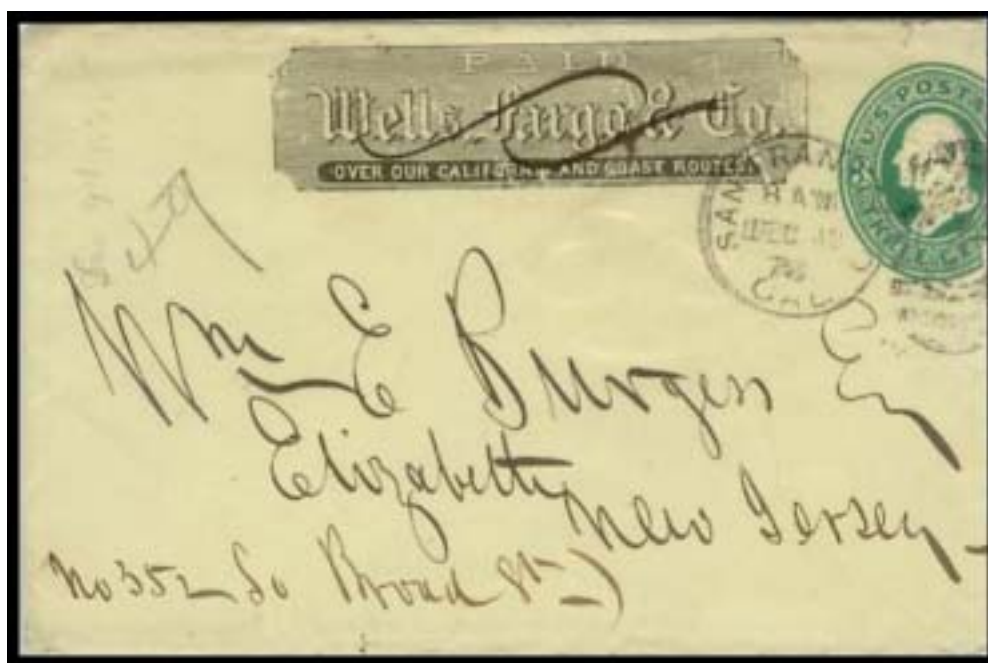 PAID
Wells, Fargo & Co.
OVER OUR CALIFORNIA AND COAST ROUTES.
U.S. POSTA
SAN FRAN
8 AM
DEC
CAL
Wm E Burgess Esq
Elizabeth
New Jersey
No 352 So Broad St)